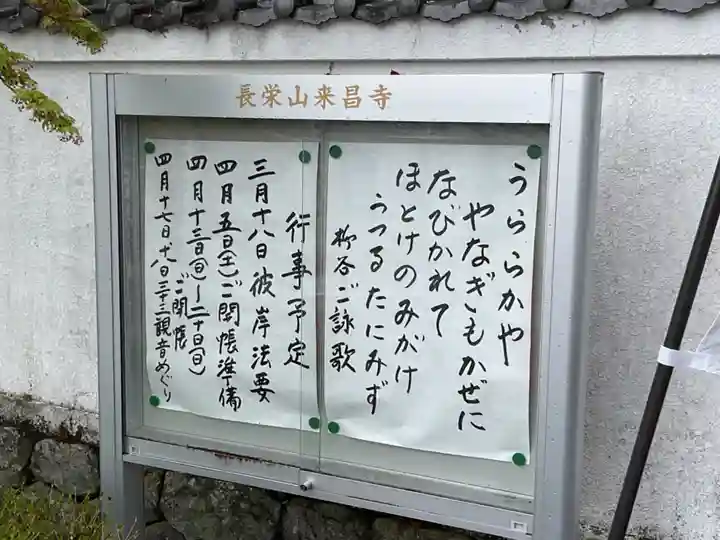 長栄山来昌寺
うららかや
やなぎもかぜに
なびかれて
ほとけのみがけ
うつるたにみず
柳谷ご詠歌
行事予定
三月十八日彼岸法要
四月五日(土)ご開帳準備
四月十三日(日)〜二十日(日)
ご開帳
四月十七日十八日三十三観音めぐり